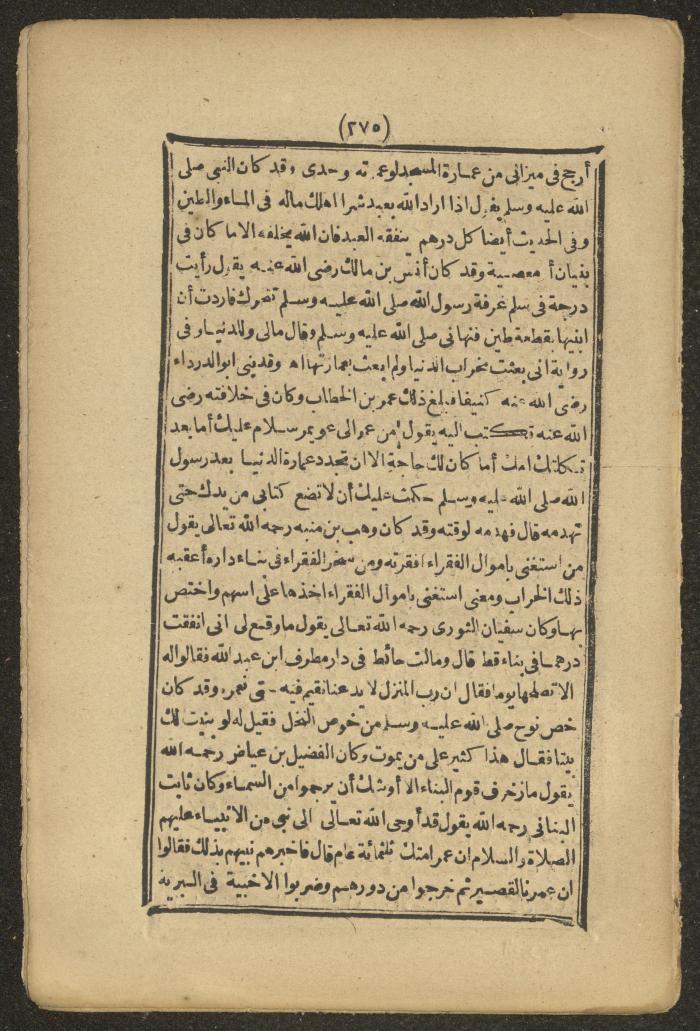 (٢٧٥)
أرجح فى ميزانى من عمارة المسجد لوعمرته وحدى وقد كان النبى صلى
الله عليه وسلم يقول اذا اراد الله بعبد شرا اهلك ماله فى الماء والطين
وفى الحديث أيضا كل درهم ينفقه العبد فان الله يخلفه الا ما كان فى
بنيان أ معصية وقد كان أنس بن مالك رضى الله عنه يقول رأيت
درجة فى سلم غرفة رسول الله صلى الله عليه وسلم تتحرك فاردت أن
ابنيها بقطعة طين فنهانى صلى الله عليه وسلم وقال مالى وللدنيا وفى
رواية انى بعثت بخراب الدنيا ولم ابعث بعمارتها اه وقد بنى ابو الدرداء
رضى الله عنه كنيفا فبلغ ذلك عمر بن الخطاب وكان فى خلافته رضى
الله عنه فكتب اليه يقول من عمر الى عويمر سلام عليك أما بعد
ثكلتك امك أما كان لك حاجة الا ان تجدد عمارة الدنيا بعد رسول
الله صلى الله عليه وسلم حكمت عليك أن لا تضع كتابى من يدك حتى
تهدمه قال فهدمه لوقته وقد كان وهب بن منبه رحمه الله تعالى يقول
من استغنى باموال الفقراء افقرته ومن سخر الفقراء فى بناء داره أعقبه
ذلك الخراب ومعنى استغنى باموال الفقراء اخذها على اسهم واختص
بها وكان سفيان الثورى رحمه الله تعالى يقول ما وقع لى انى انفقت
درهما فى بناء قط قال ومالت حائط فى دار مطرف ابن عبد الله فقالوا له
الا تصلحها يوما فقال ان رب المنزل لا يدعنا نقيم فيه حتى نعمره وقد كان
خص نوح صلى الله عليه وسلم من خوص النخل فقيل له لو بنيت لك
بيتا فقال هذا كثير على من يموت وكان الفضيل بن عياض رحمه الله
يقول ما زخرف قوم البناء الا أوشك أن يرجموا من السماء وكان ثابت
البنانى رحمه الله يقول قد أوحى الله تعالى الى نبى من الانبياء عليهم
الصلاة والسلام ان عمر امتك ثلثمائة عام قال فاخبرهم نبيهم بذلك فقالوا
ان عمرنا لقصير ثم خرجوا من دورهم وضربوا الاخبية فى البرية